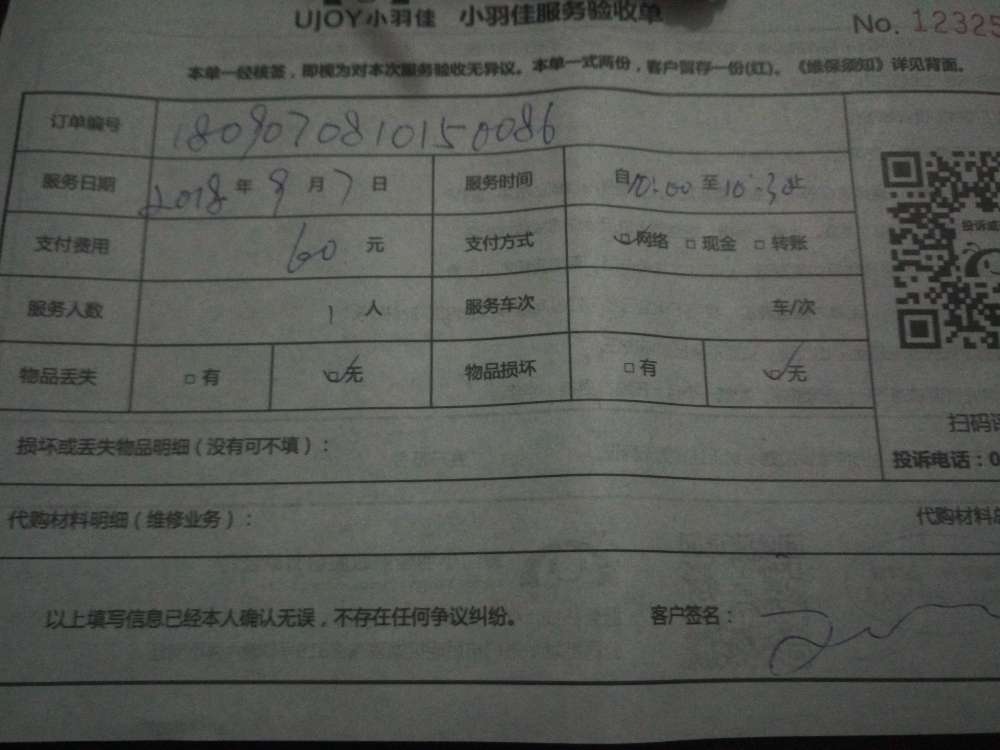 UJOY小羽佳 小羽佳服务验收单
No. 12325
本单一经核签，即视为对本次服务验收无异议。本单一式两份，客户留存一份(红)。《维保须知》详见背面。
订单编号 1809070810150086
服务日期 2018年9月7日 服务时间 自10:00至10:30止
支付费用 60元 支付方式 □网络 □现金 □转账
服务人数 1人 服务车次 车/次
物品丢失 □有 □无 物品损坏 □有 □无
投诉或
扫码评
损坏或丢失物品明细（没有可不填）：
投诉电话：0
代购材料明细（维修业务）： 代购材料总
以上填写信息已经本人确认无误，不存在任何争议纠纷。 客户签名：